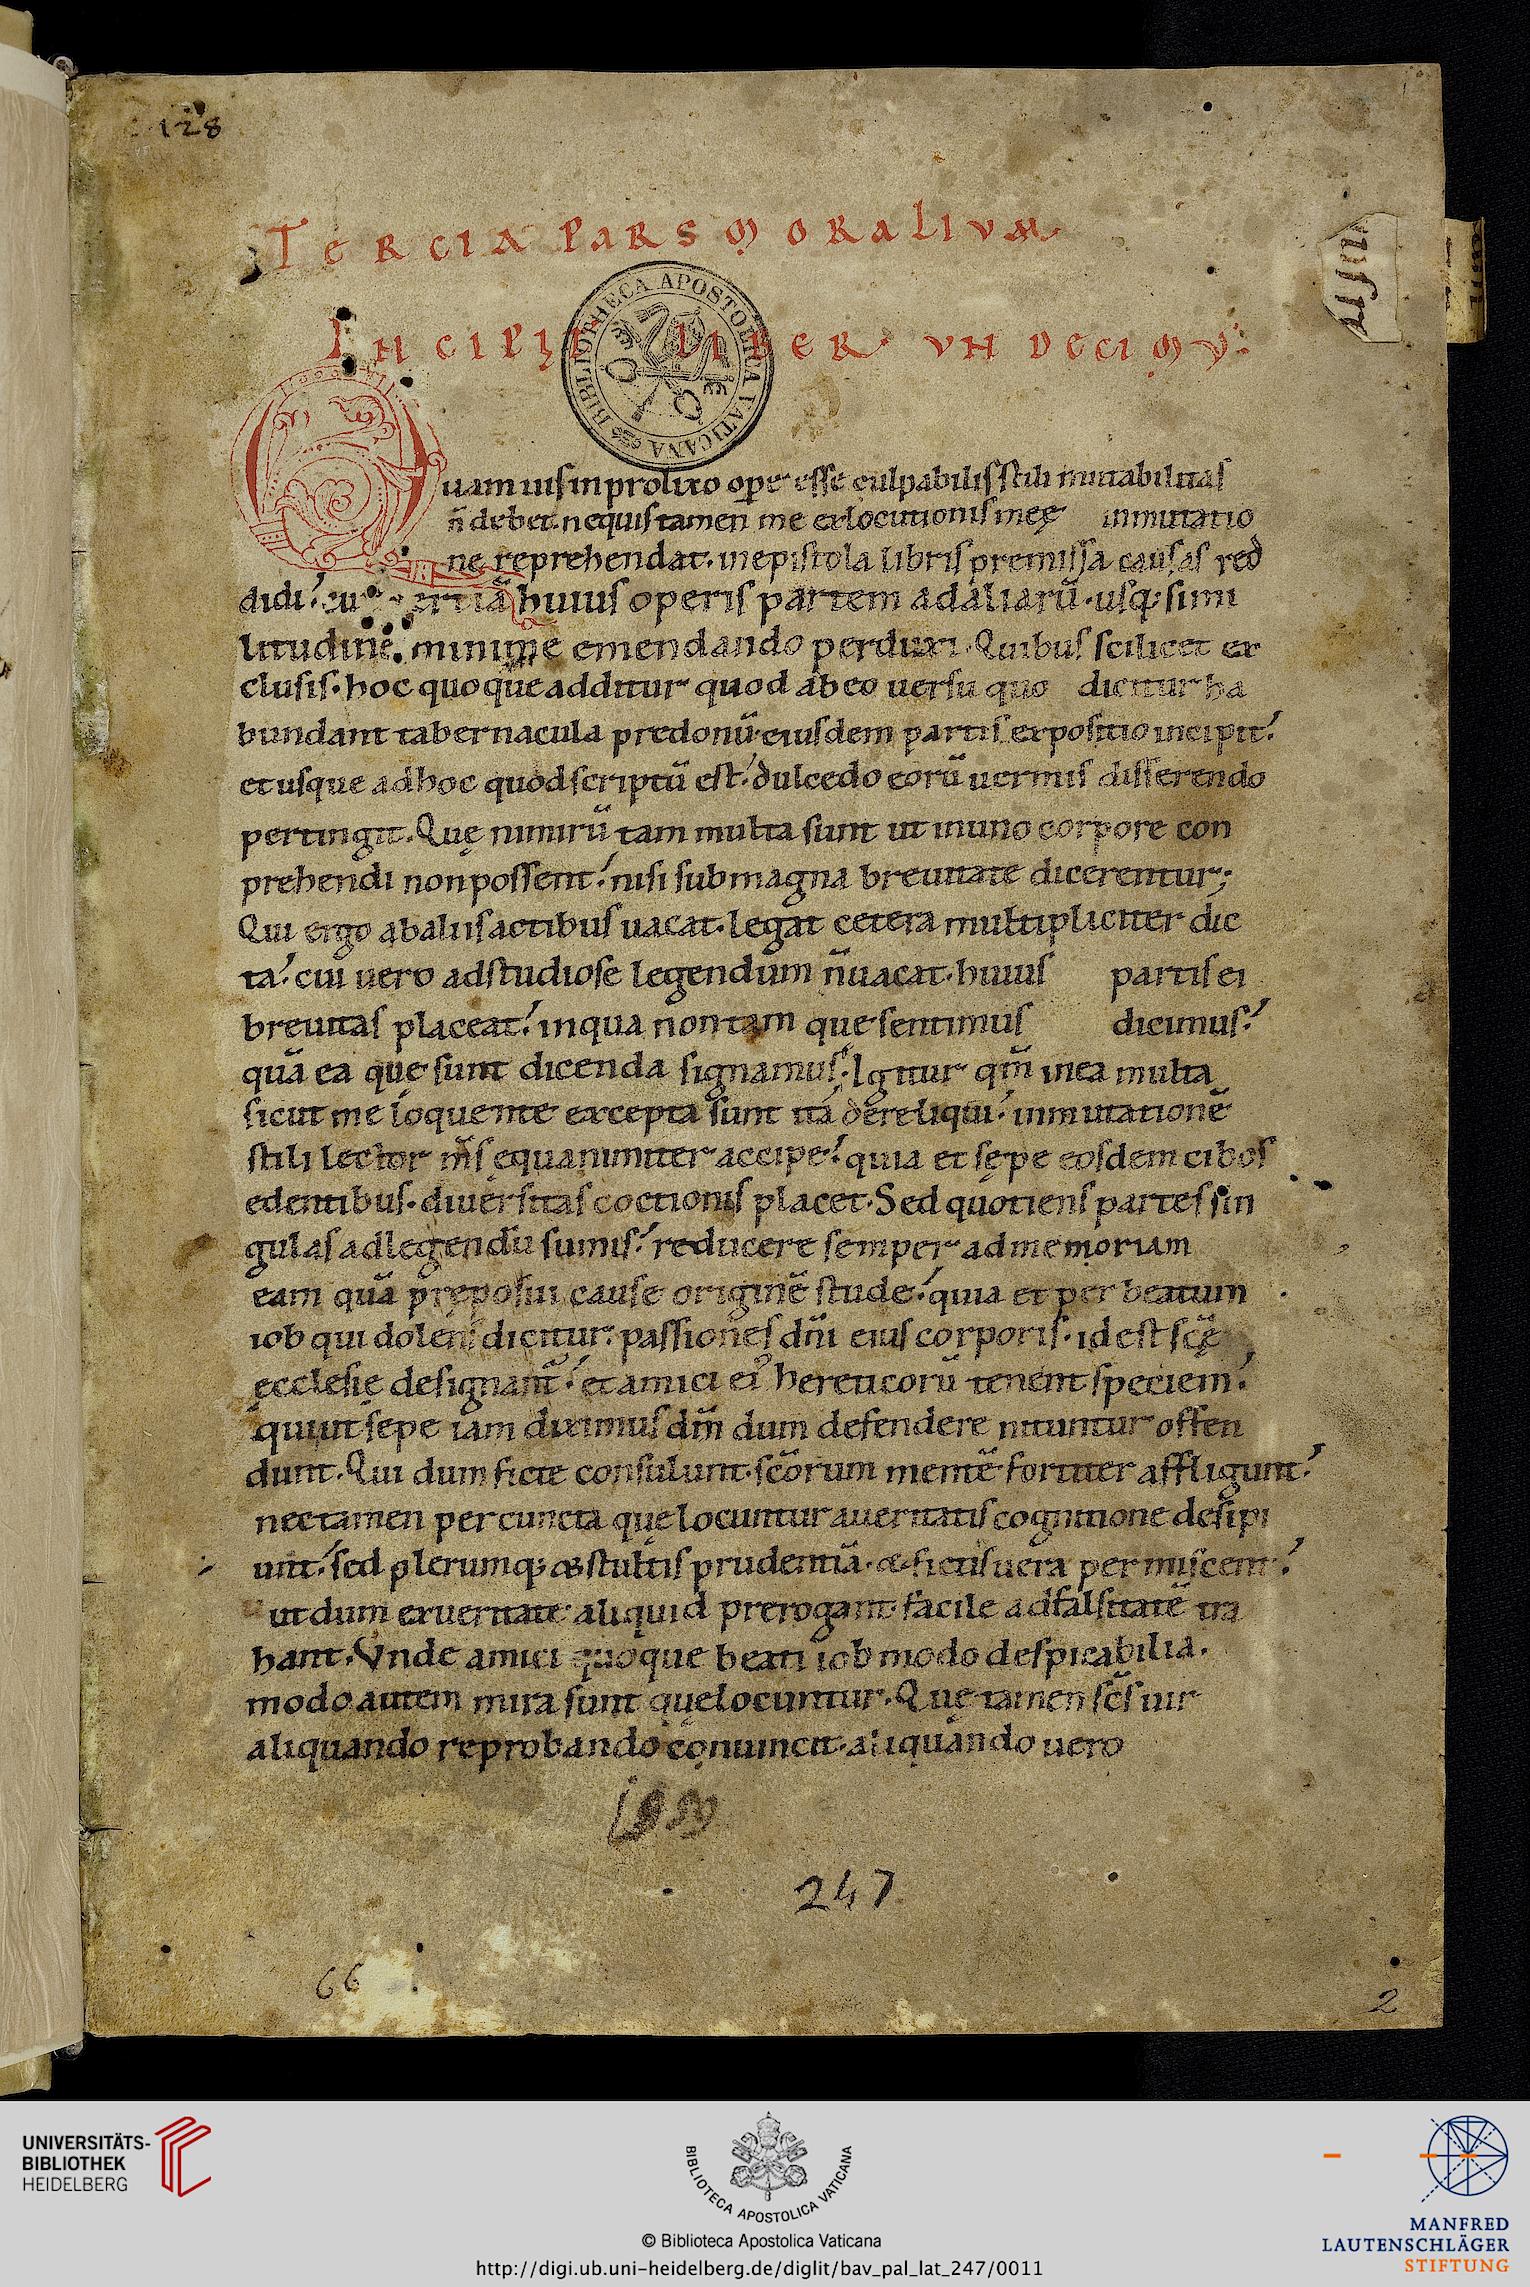 128
TERCIA PARS MORALIVM
INCIPIT LIBER VNDECIMV·
BIBLIOTHECA APOSTOLICA VATICANA
Quam uis in prolixo ope esse culpabilis stili mutabilitas
n̄ debet. nequis tamen me ex locutionis meę inmutatio
ne reprehendat. in epistola libris premissa causas red
didi. huius operis partem ad aliarū. usq; simi
litudinē. minime emendando perduxi. Quibus scilicet ex
clusis. hoc quoque additur quod ab eo uersu quo dicitur ha
bundant tabernacula predonū. eiusdem partis expositio incipit.
et usque ad hoc quod scriptū est. dulcedo eorū uermis disserendo
pertingit. Quę nimirū tam multa sunt ut in uno corpore con
prehendi non possent. nisi sub magna breuitate dicerentur;
Qui ergo ab aliis actibus uacat. legat cetera multipliciter dic
ta. cui uero ad studiose legendum n̄ uacat. huius partis ei
breuitas placeat. in qua non tam que sentimus dicimus.
quā ea que sunt dicenda signamus. Igitur qm̄ in ea multa
sicut me loquente excepta sunt ita dereliqui. inmutationē
stili lector m̄s equanimiter accipe. quia et sępe eosdem cibos
edentibus. diuersitas coctionis placet. Sed quotiens partes sin
gulas ad legendū sumis. reducere semper ad memoriam
eam quā pręposui cause originē stude. quia et per beatum
iob qui dolens dicitur. passiones dn̄i eius corporis. id est scę̄
ęcclesię designant̄. et amici ei᾽ hereticorū tenent speciem.
qui ut sepe iam diximus dm̄ dum defendere nituntur offen
dunt. Qui dum ficte consulunt. sc̄orum mentē fortiter affligunt.
nec tamen per cuncta quę locuntur a ueritatis cognitione desipi
unt. sed plerumq; & stultis prudentiā. & fictis uera permiscent.
ut dum ex ueritate aliquid prerogant. facile ad falsitatē tra
hant. Vnde amici quoque beati iob modo despicabilia.
modo autem mira sunt quę locuntur. Quę tamen sc̄s uir
aliquando reprobando conuincit. aliquando uero
247
66
2
UNIVERSITÄTS-
BIBLIOTHEK
HEIDELBERG
BIBLIOTECA APOSTOLICA VATICANA
© Biblioteca Apostolica Vaticana
http://digi.ub.uni-heidelberg.de/diglit/bav_pal_lat_247/0011
MANFRED
LAUTENSCHLÄGER
STIFTUNG